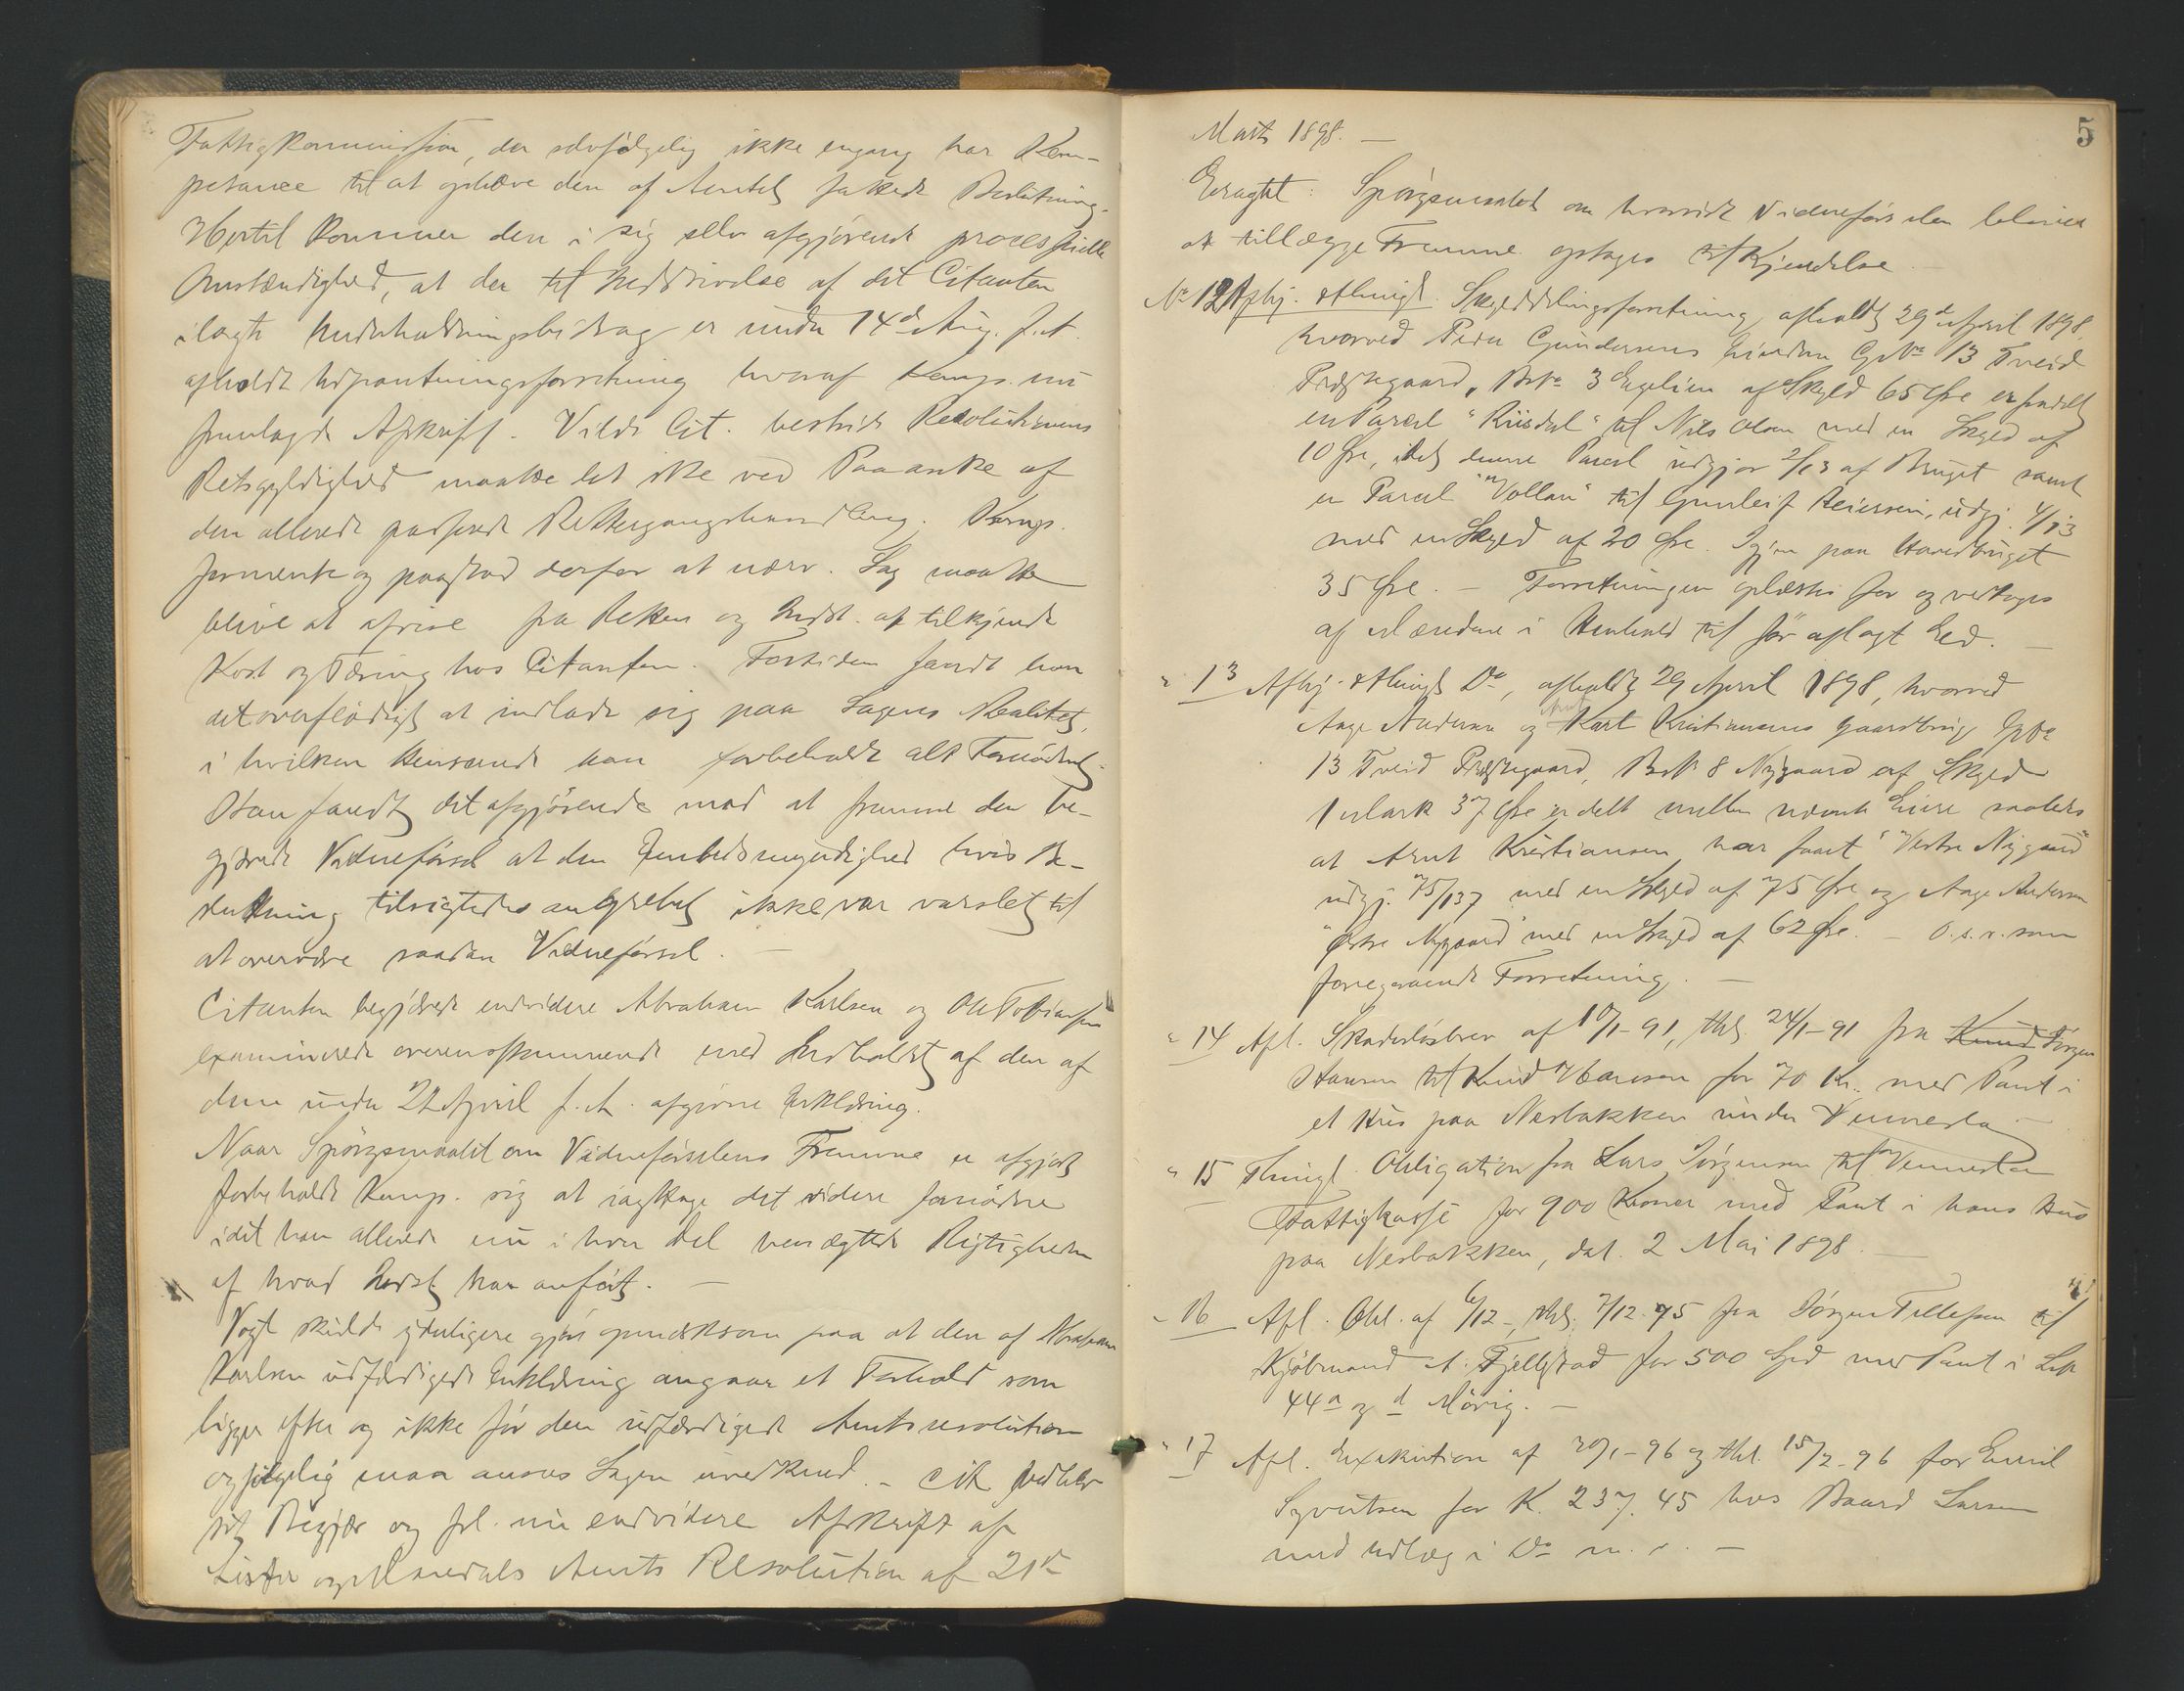 Fattigkommission, der selvfølgelig ikke engang har Kom-
petance til at ophæve den af Amtet fattede Beslutning.
Hertil kommer den i sig selv afgjørende processuelle
Omstændighed, at der til Inddrivelse af det Citanten
ilagte Underholdningsbidrag er under 14de Aug. f. A.
afholdt Udpantningsforretning hvoraf Komp. nu
fremlagde Afskrift. Vilde Cit. bestride Resolutionens
Retsgyldighed maatte det ske ved Paaanke af
den allerede passerede Rettergangshandling. Komp.
formente og paastod derfor at nærv. Sag maatte
blive at afvise fra Retten og Indst. at tilkjende
Kost og Tæring hos Citanten. Forøvrigt fandt han
det overflødigt at indlade sig paa Sagens Realitet,
i hvilken Henseende han forbeholdt alt Fornødent.
Han fandt det afgjørende mod at fremme den be-
gjærede Vidneførsel at den Embedsmyndighed hvis Be-
slutning tilsigtedes angrebet ikke var varslet til
at overvære saadan Vidneførsel. —
Citanten begjærede endvidere Abraham Karlsen og Ole Tobiassen
examinerede overensstemmende med Indholdet af den af
dem under 22 April f. A. afgivne Erklæring.
Naar Spørgsmaalet om Vidneførselens Fremme er afgjort
forbeholdt Komp. sig at iagttage det videre fornødne
idet han allerede nu i hver Del benægtede Rigtigheden
af hvad Indst. har anført. —
Vogt skulde yderligere gjøre opmærksom paa at den af Abraham
Karlsen udfærdigede Erklæring angaar et Forhold som
ligger efter og ikke før den udfærdigede Amtsresolution
og følgelig maa ansees Sagen uvedkommd. — Cit. vedblev
sit Begjær og frl. nu endvidere Afskrift af
Lister og Mandals Amts Resolution af 21de
5
Marts 1898. —
Eragtet: Spørgsmaalet om hvorvidt Vidneførselen bliver
at tillægge Fremme optages til Kjendelse —
No 12 Afhj. & thingl. Skylddelingsforretning afholdt 29de April 1898,
hvorved Peder Gundersens Eiendom GNo 13 Tveid
Præstegaard, BNo 3 Engelien af Skyld 65 Øre er fradelt
en Parcel "Riisdal" til Nils Olsen med en Skyld af
10 Øre, idet denne Parcel udgjør 2/13 af Bruget samt
en Parcel "Vollan" til Gunleif Reiersen, udgj. 4/13
med en Skyld af 20 Øre. Igjen paa Hovedbruget
35 Øre. — Forretningen oplæstes for og vedtoges
af Mændene i Henhold til før aflagt Ed. —
" 13 Afhj. & thingl. Do, afholdt 29 April 1898, hvorved
Aage Andersen og Karl Kristiansens Gaardbrug GNo
13 Tveid Præstegaard, BNo 8 Nygaard af Skyld
1 Mark 37 Øre er delt mellem nævnte Eiere saaledes
at Arnt Kristiansen har faaet "Vestre Nygaard"
udgj. 75/137 med en Skyld af 75 Øre og Aage Andersen
"Østre Nygaard" med en Skyld af 62 Øre. — O. s. v. som
foregaaende Forretning. —
" 14 Afl. Skadesløsbrev af 10/1-91, thl. 24/1-91 fra Knud Jørgen
Hansen til Knud Hansen for 70 Kr. med Pant i
et Hus paa Nesbakken under Vennesla —
" 15 Thingl. Obligation fra Lars Jørgensen til Vennesla
Fattigkasse for 900 Kroner med Pant i hans Hus
paa Nesbakken, dat. 2 Mai 1898. —
" 16 Afl. Obl. af 6/12-, thl. 7/12.75 fra Jørgen Tellefsen til
Kjøbmand A. Fjellestad for 500 Spd med Pant i LNo
44a og d Møvig. —
" 17 Afl. Exekution af 20/1-96 og thl. 15/2-96 for Emil
Syvertsen for K. 237.45 hos Baard Larsen
med Udlæg i Do m. v. —